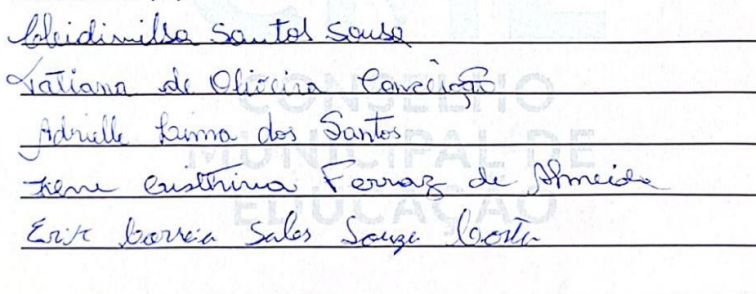 Cleidinilsa Santos Sousa
Tatiana de Oliveira Conceição
Adrielle Lima dos Santos
Irene Cristhina Ferraz de Almeida
Erik Correia Sales Souza Costa
CONSELHO
MUNICIPAL DE
EDUCAÇÃO